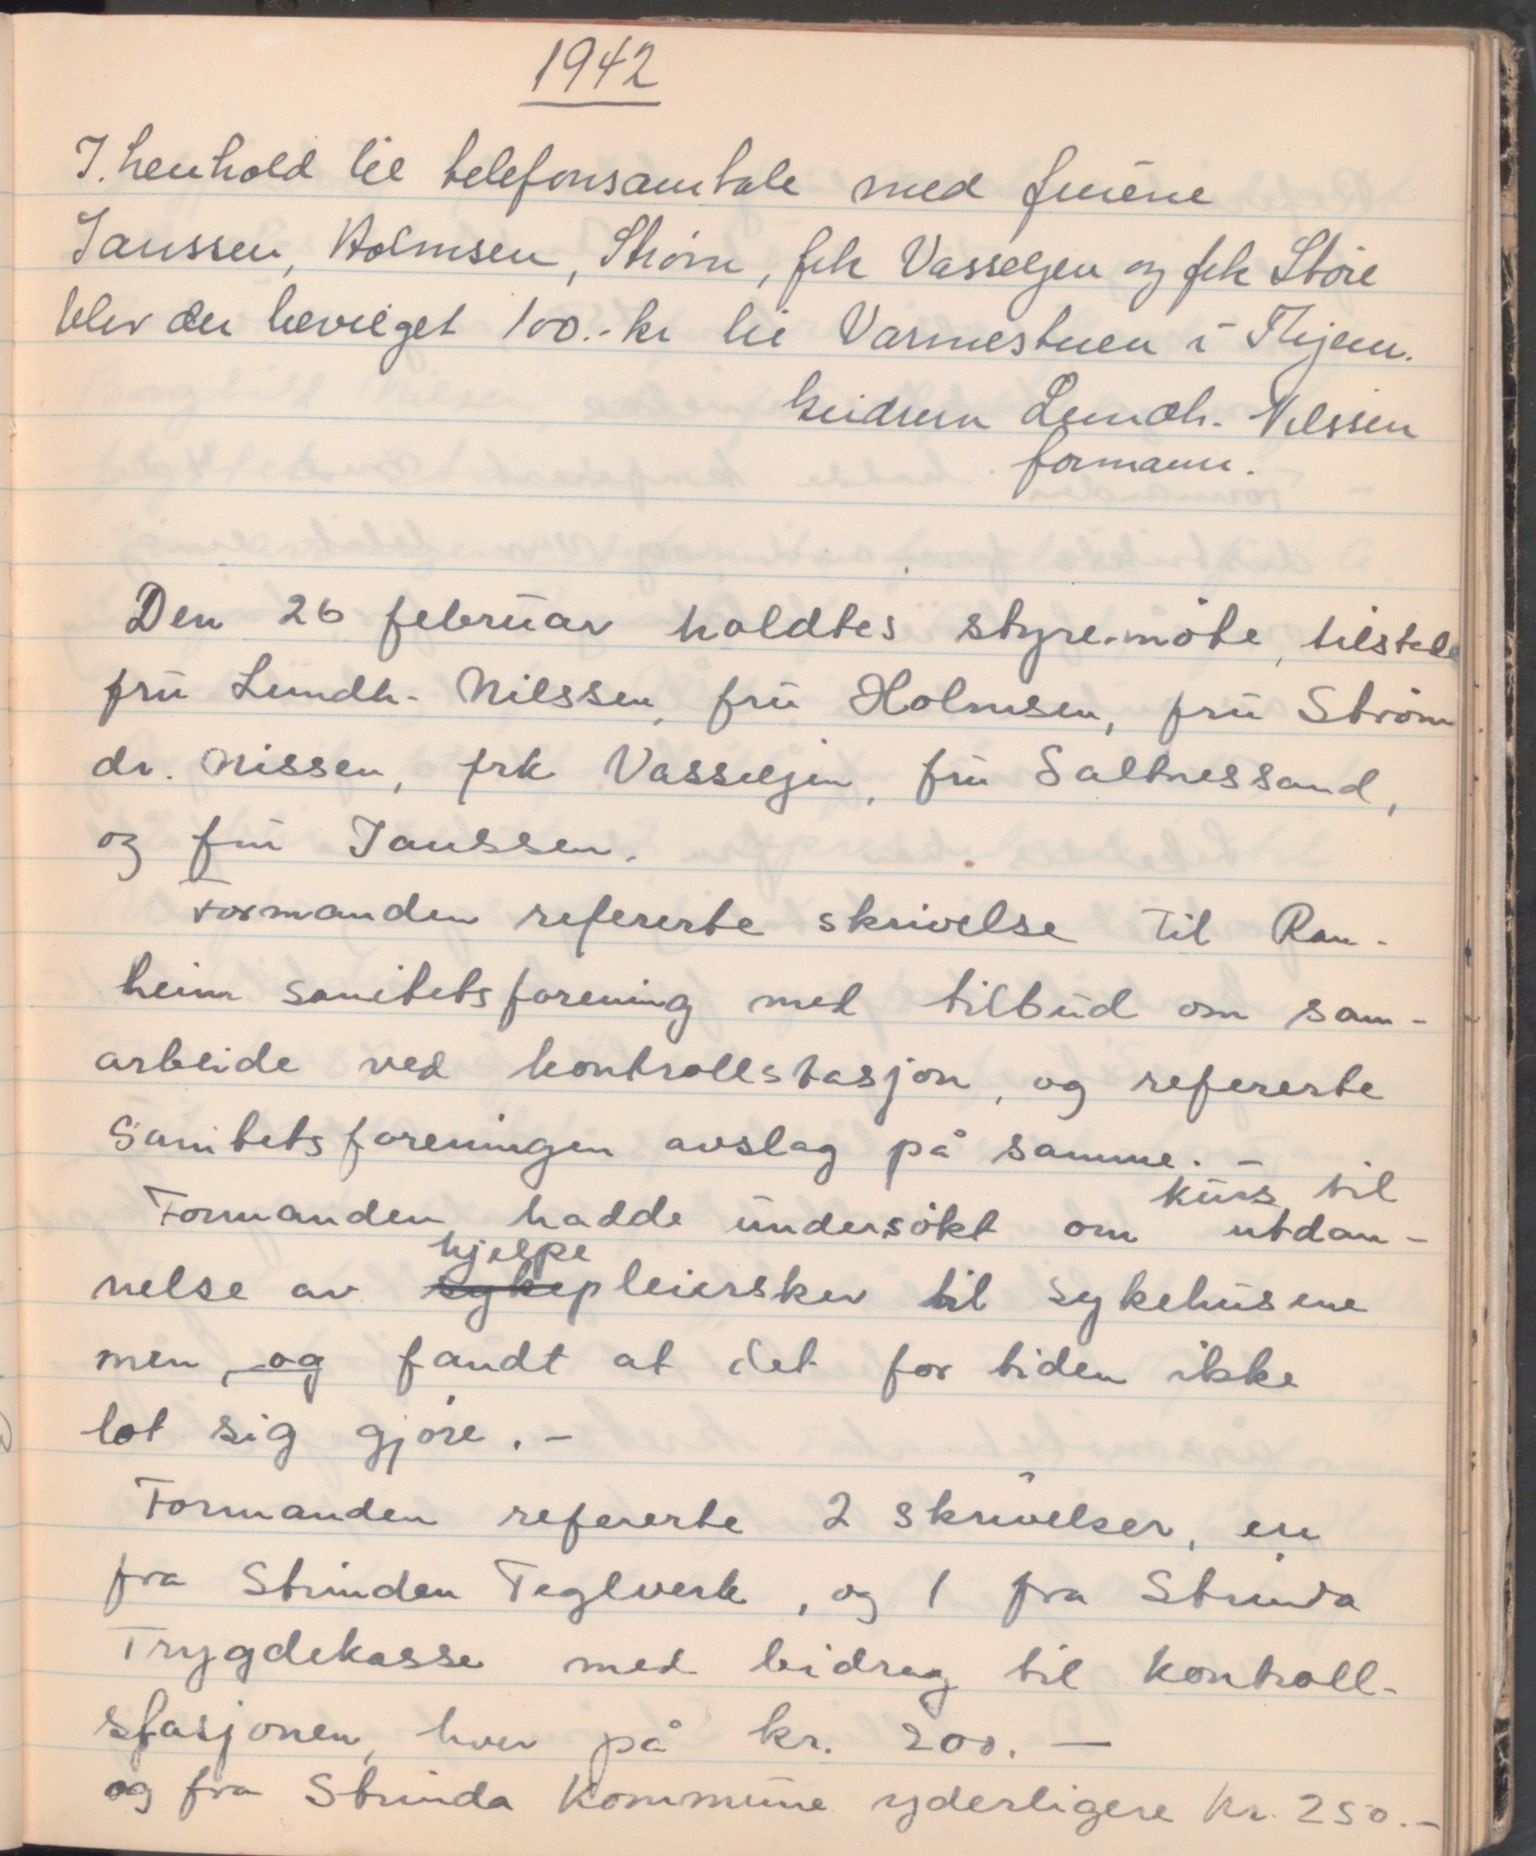 1942
I. henhold til telefonsamtale med fruene
Janssen, Holmsen, Strøm, frk Vasseljen og frk Støre
blev der bevilget 100.- kr til Varmestuen i Thjem.
Guidrun Lundh. Nilssen
formann.
Den 26 februar holdtes styre-møte, tilstede
fru Lundh- Nilssen, fru Holmsen, fru Strøm
dr. Nissen, frk Vasseljen, fru Saltnessand,
og fru Janssen.
Formanden refererte skrivelse til Ran-
heim sanitetsforening med tilbud om sam-
arbeide ved kontrollstasjon, og refererte
Sanitetsforeningen avslag på samme. -
kurs til
Formanden hadde undersøkt om utdan-
hjelpe
nelse av sykepleiersker til sykehusene
men og fandt at det for tiden ikke
lot sig gjøre. -
Formanden refererte 2 skrivelser, en
fra Strinden Teglverk, og 1 fra Strinda
Trygdekasse med bidrag til kontroll-
stasjonen, hver på kr. 200. -
og fra Strinda Kommune yderligere kr. 250.-